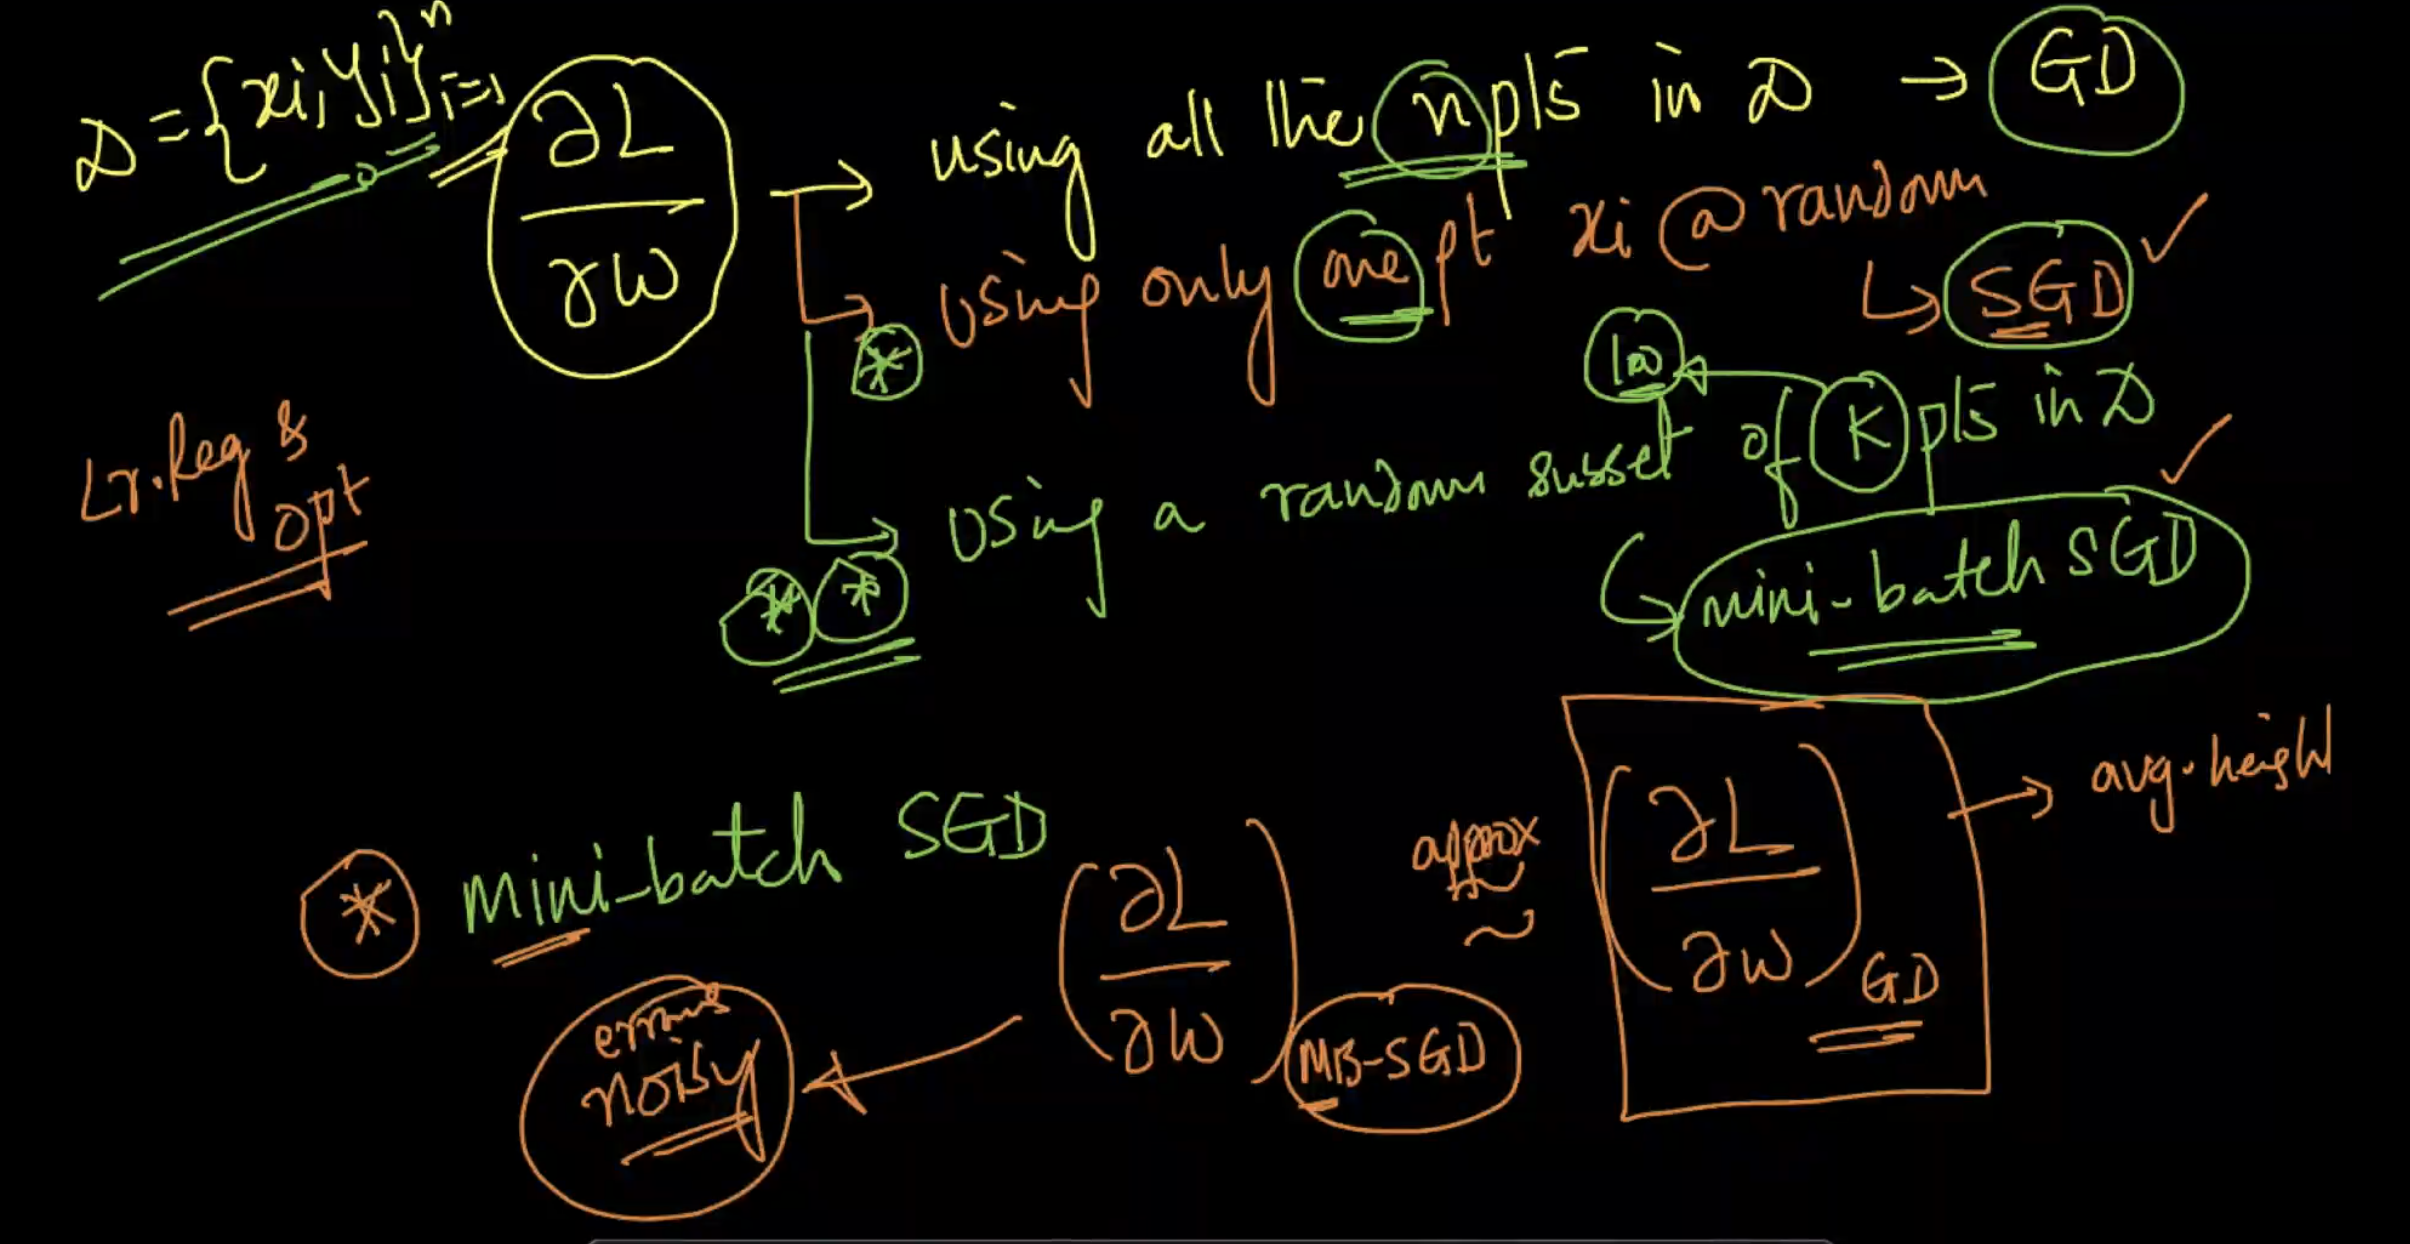 D = {xi, yi}ⁿi=1
∂L/∂w → using all the n pts in D → GD
* using only one pt xi @ random
↳ SGD ✓
100
* * using a random subset of K pts in D
mini-batch SGD ✓
Lr. Reg &
opt
* Mini-batch SGD
(∂L/∂w) MB-SGD
approx
~
(∂L/∂w) GD → avg. height
errors
noisy